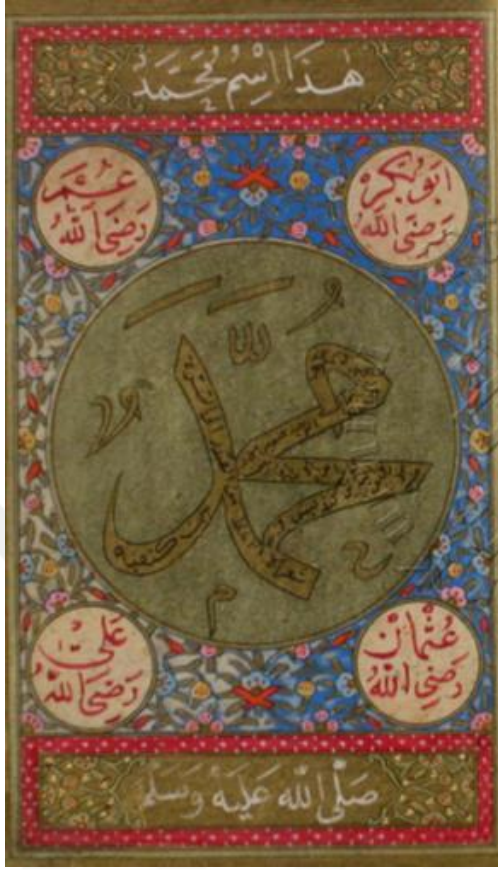 هٰذَا اِسْمُ مُحَمَّدٍ
اَبُو بَكْرْ
رَضِيَ اللّٰهُ
عُمَرْ
رَضِيَ اللّٰهُ
اللّٰه
مُحَمَّد
عُثْمَانْ
رَضِيَ اللّٰهُ
عَلِيّ
رَضِيَ اللّٰهُ
صَلَّى اللّٰهُ عَلَيْهِ وَسَلَّمْ